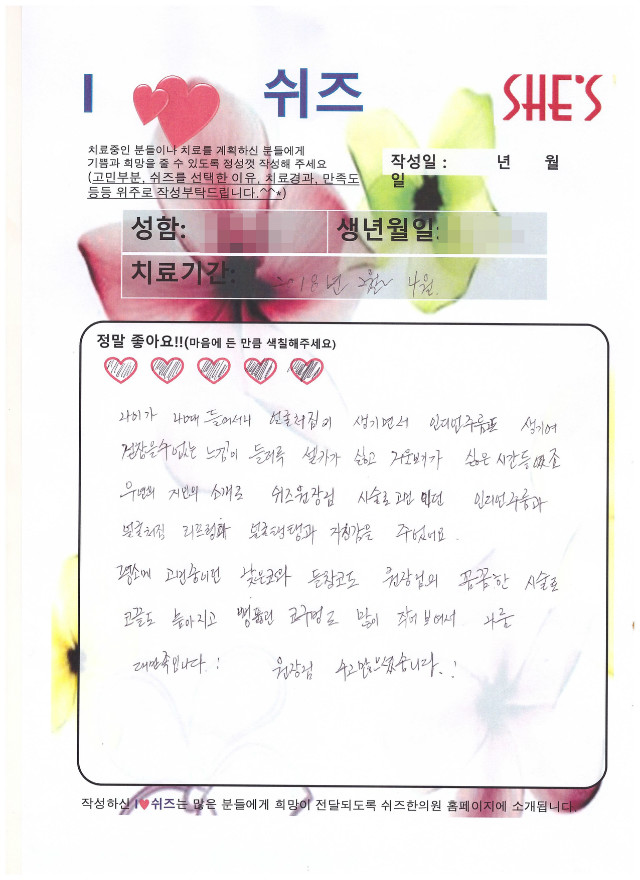 I 쉬즈 SHE'S
치료중인 분들이나 치료를 계획하신 분들에게
기쁨과 희망을 줄 수 있도록 정성껏 작성해 주세요
(고민부분, 쉬즈를 선택한 이유, 치료경과, 만족도
등등 위주로 작성부탁드립니다.^^*)
작성일 : 년 월
일
성함: 생년월일:
치료기간: 2018년 2월~ 4월.
정말 좋아요!!(마음에 든 만큼 색칠해주세요)
나이가 들어서니 얼굴처짐이 생기면서 인디언주름도 생기여
느낌이 들려 셀카가 싫고 거울보기가 싫은 시간들
우연의 지인의 소개로 쉬즈원장님 시술로 고민 인디언주름과
얼굴처짐 리프팅과 얼굴탱탱과 자신감을 주었어요.
평소에 고민중이던 낮은코와 들창코도 원장님의 꼼꼼한 시술로
코끝도 높아지고 코구멍도 많이 작아 보여서 너무
대만족입니다.! 원장님 수고많으셨습니다.!
작성하신 I♥쉬즈는 많은 분들에게 희망이 전달되도록 쉬즈한의원 홈페이지에 소개됩니다.